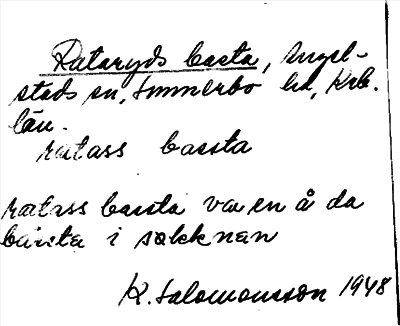 Rataryds basta, Angel-
stads sn, Sunnerbo hd, Krb.
län.
ratass bassta
ratass bassta va en å da
bässta i sokknan
K. Salomonsson 1948